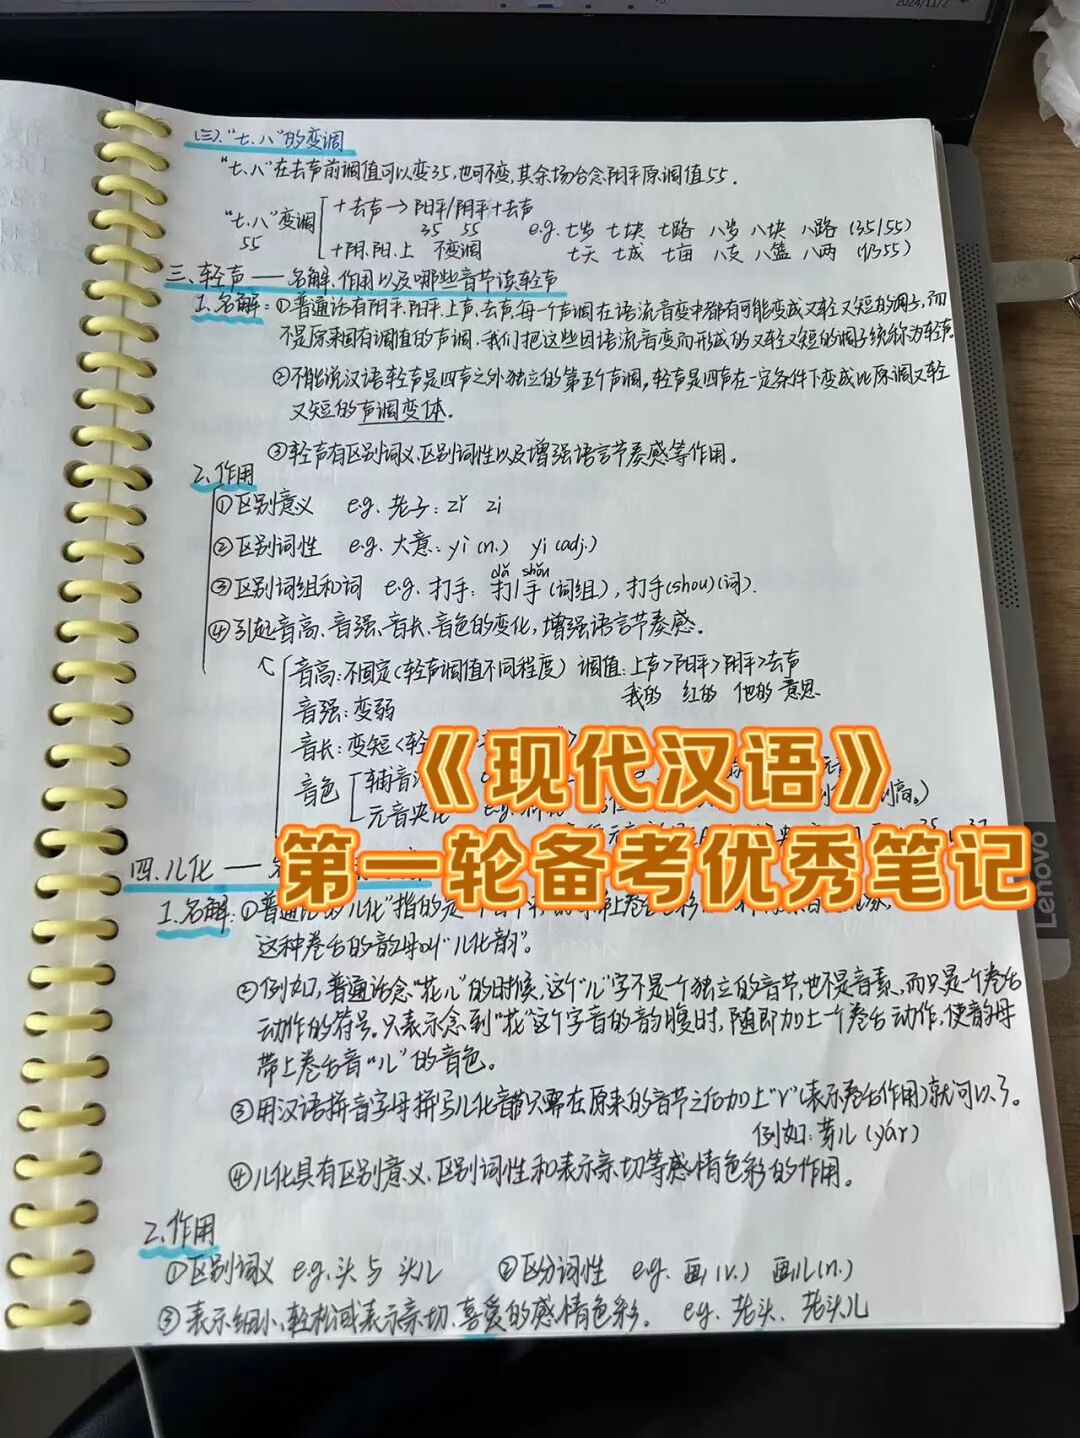 2024/11/2
(三)、“七、八”的变调
“七、八”在去声前调值可以变35,也可不变,其余场合念阴平原调值55.
“七、八”变调
55
+去声→阳平/阴平+去声
35 55
e.g. 七岁 七块 七路 八岁 八块 八路 (35/55)
+阴、阳、上 不变调
七天 七成 七亩 八支 八篮 八两 (1/355)
三、轻声——名解、作用以及哪些音节读轻声
1、名解:①普通话有阴平、阳平、上声、去声,每一个声调在语流音变中都有可能变成又轻又短的调子,而
不是原来固有调值的声调.我们把这些因语流音变而形成的又轻又短的调子统称为轻声.
②不能说汉语轻声是四声之外独立的第五个声调,轻声是四声在一定条件下变成比原调又轻
又短的声调变体.
③轻声有区别词义、区别词性以及增强语言节奏感等作用.
2、作用
①区别意义 e.g. 老子:zǐ zi
②区别词性 e.g. 大意:yì(n.) yi(adj.)
dǎ shǒu
③区别词组和词 e.g. 打手:打/手(词组),打手(shou)(词).
④引起音高、音强、音长、音色的变化,增强语言节奏感.
音高:不固定(轻声调值不同程度) 调值:上声>阳平>阴平>去声
我的 红的 他的 意思
音强:变弱
音长:变短<轻
音色
辅音
元音央化
《现代汉语》
第一轮备考优秀笔记
Lenovo
四、儿化——
1、名解:①普通话的“儿化”指的是一个
这种卷舌的韵母叫“儿化韵”.
②例如,普通话念“花儿”的时候,这个“儿”字不是一个独立的音节,也不是音素,而只是一个卷舌
动作的符号.只表示念到“花”这个字音的韵腹时,随即加上一个卷舌动作,使韵母
带上卷舌音“儿”的音色.
③用汉语拼音字母拼写儿化音节,只需在原来的音节之后加上“r”(表示卷舌作用)就可以了.
例如:芽儿(yár)
④儿化具有区别意义、区别词性和表示亲切等感情色彩的作用.
2、作用
①区别词义 e.g. 头与头儿 ②区分词性 e.g. 画(v.) 画儿(n.)
③表示细小、轻松或表示亲切、喜爱的感情色彩. e.g. 老头、老头儿